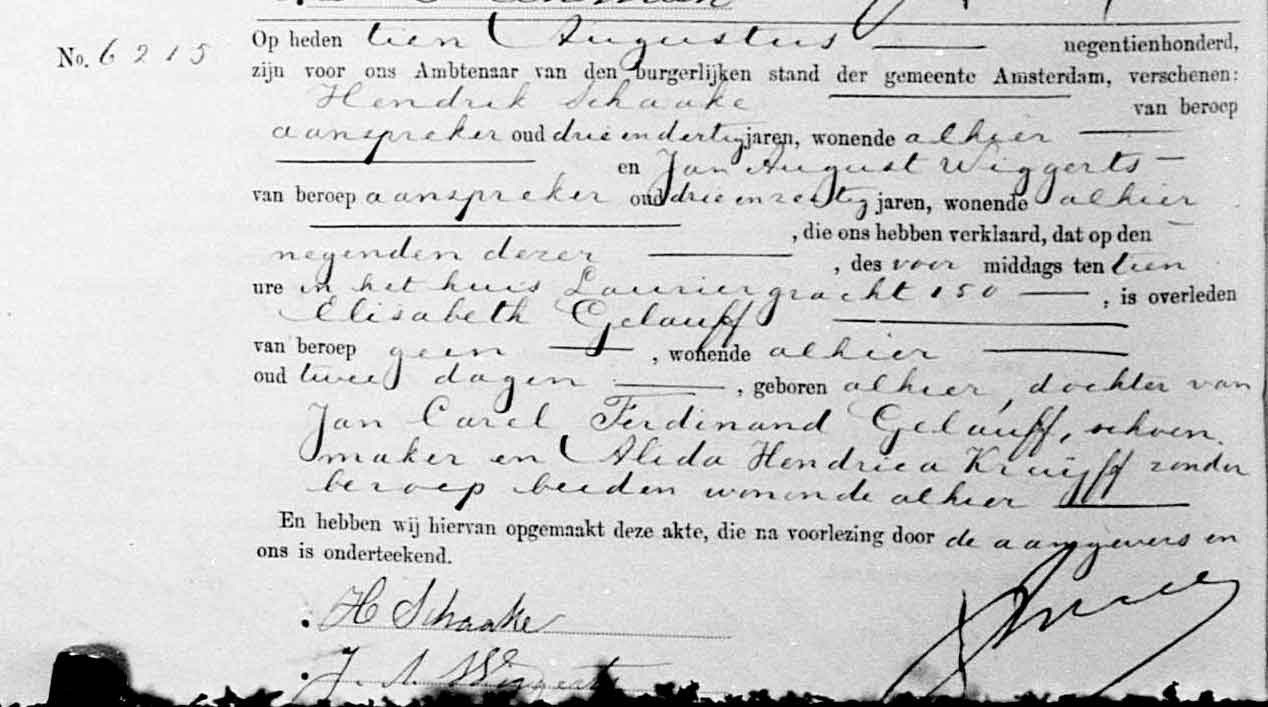 No. 6215
Op heden tien Augustus negentienhonderd,
zijn voor ons Ambtenaar van den burgerlijken stand der gemeente Amsterdam, verschenen:
Hendrik Schaake van beroep
aanspreker oud drie en dertig jaren, wonende alhier
en Jan August Wiggerts
van beroep aanspreker oud drie en zestig jaren, wonende alhier
, die ons hebben verklaard, dat op den
negenden dezer , des voor middags ten tien
ure in het huis Lauriergracht 150 , is overleden
Elisabeth Gelauff
van beroep geen , wonende alhier
oud twee dagen , geboren alhier, dochter van
Jan Carel Ferdinand Gelauff, schoen
maker en Alida Hendrica Kruijff zonder
beroep beiden wonende alhier
En hebben wij hiervan opgemaakt deze akte, die na voorlezing door de aangevers en
ons is onderteekend.
H Schaake
J. A. Wiggerts